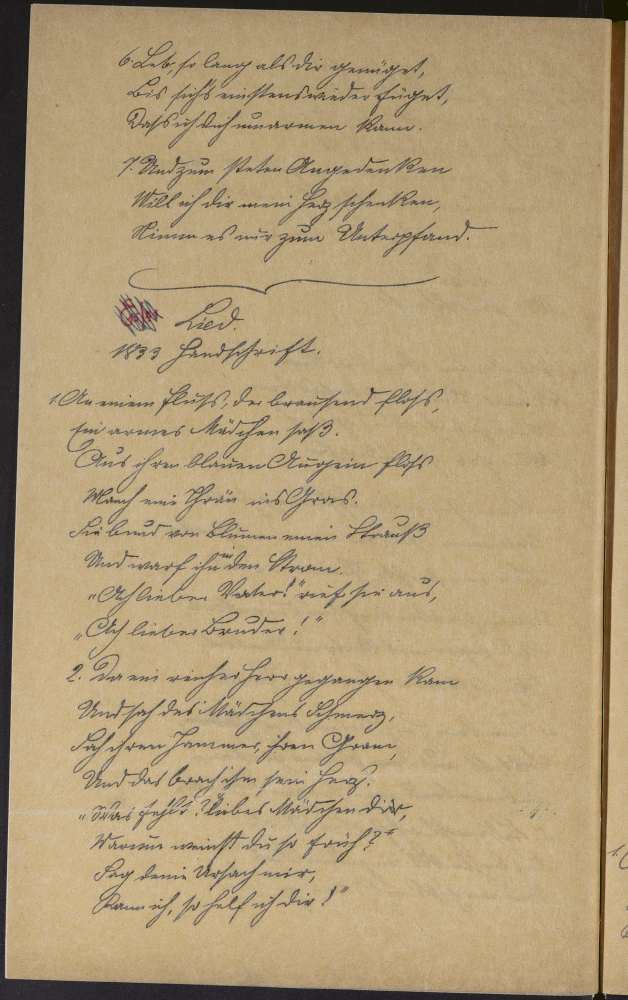 6. Leb, so lang als dir genüget,
Bis sich's einstens wieder füget,
Dass ich dich umarmen kann.
7. Und zum steten Angedenken
Will ich dir mein Herz schenken,
Nimm es nur zum Unterpfand.
Lied.
1833 Handschrift.
1. An einem Fluss, der brausend floss,
Ein armes Mädchen saß.
Aus ihren blauen Äugein floss
Manch eine Thrän ins Gras.
Sie band von Blumen einen Strauß
Und warf ihn in den Strom.
"Ach lieber Vater!" rief sie aus,
"Ach lieber Bruder!"
2. Da ein reicher Herr gegangen kam
Und sah des Mädchens Schmerz,
Sah ihren Jammer, ihren Gram,
Und das brach ihm sein Herz.
"Was fehlt, liebes Mädchen dir,
Warum weinst du so früh?"
Sag deine Ursach mir,
Kann ich, so helf ich dir!"